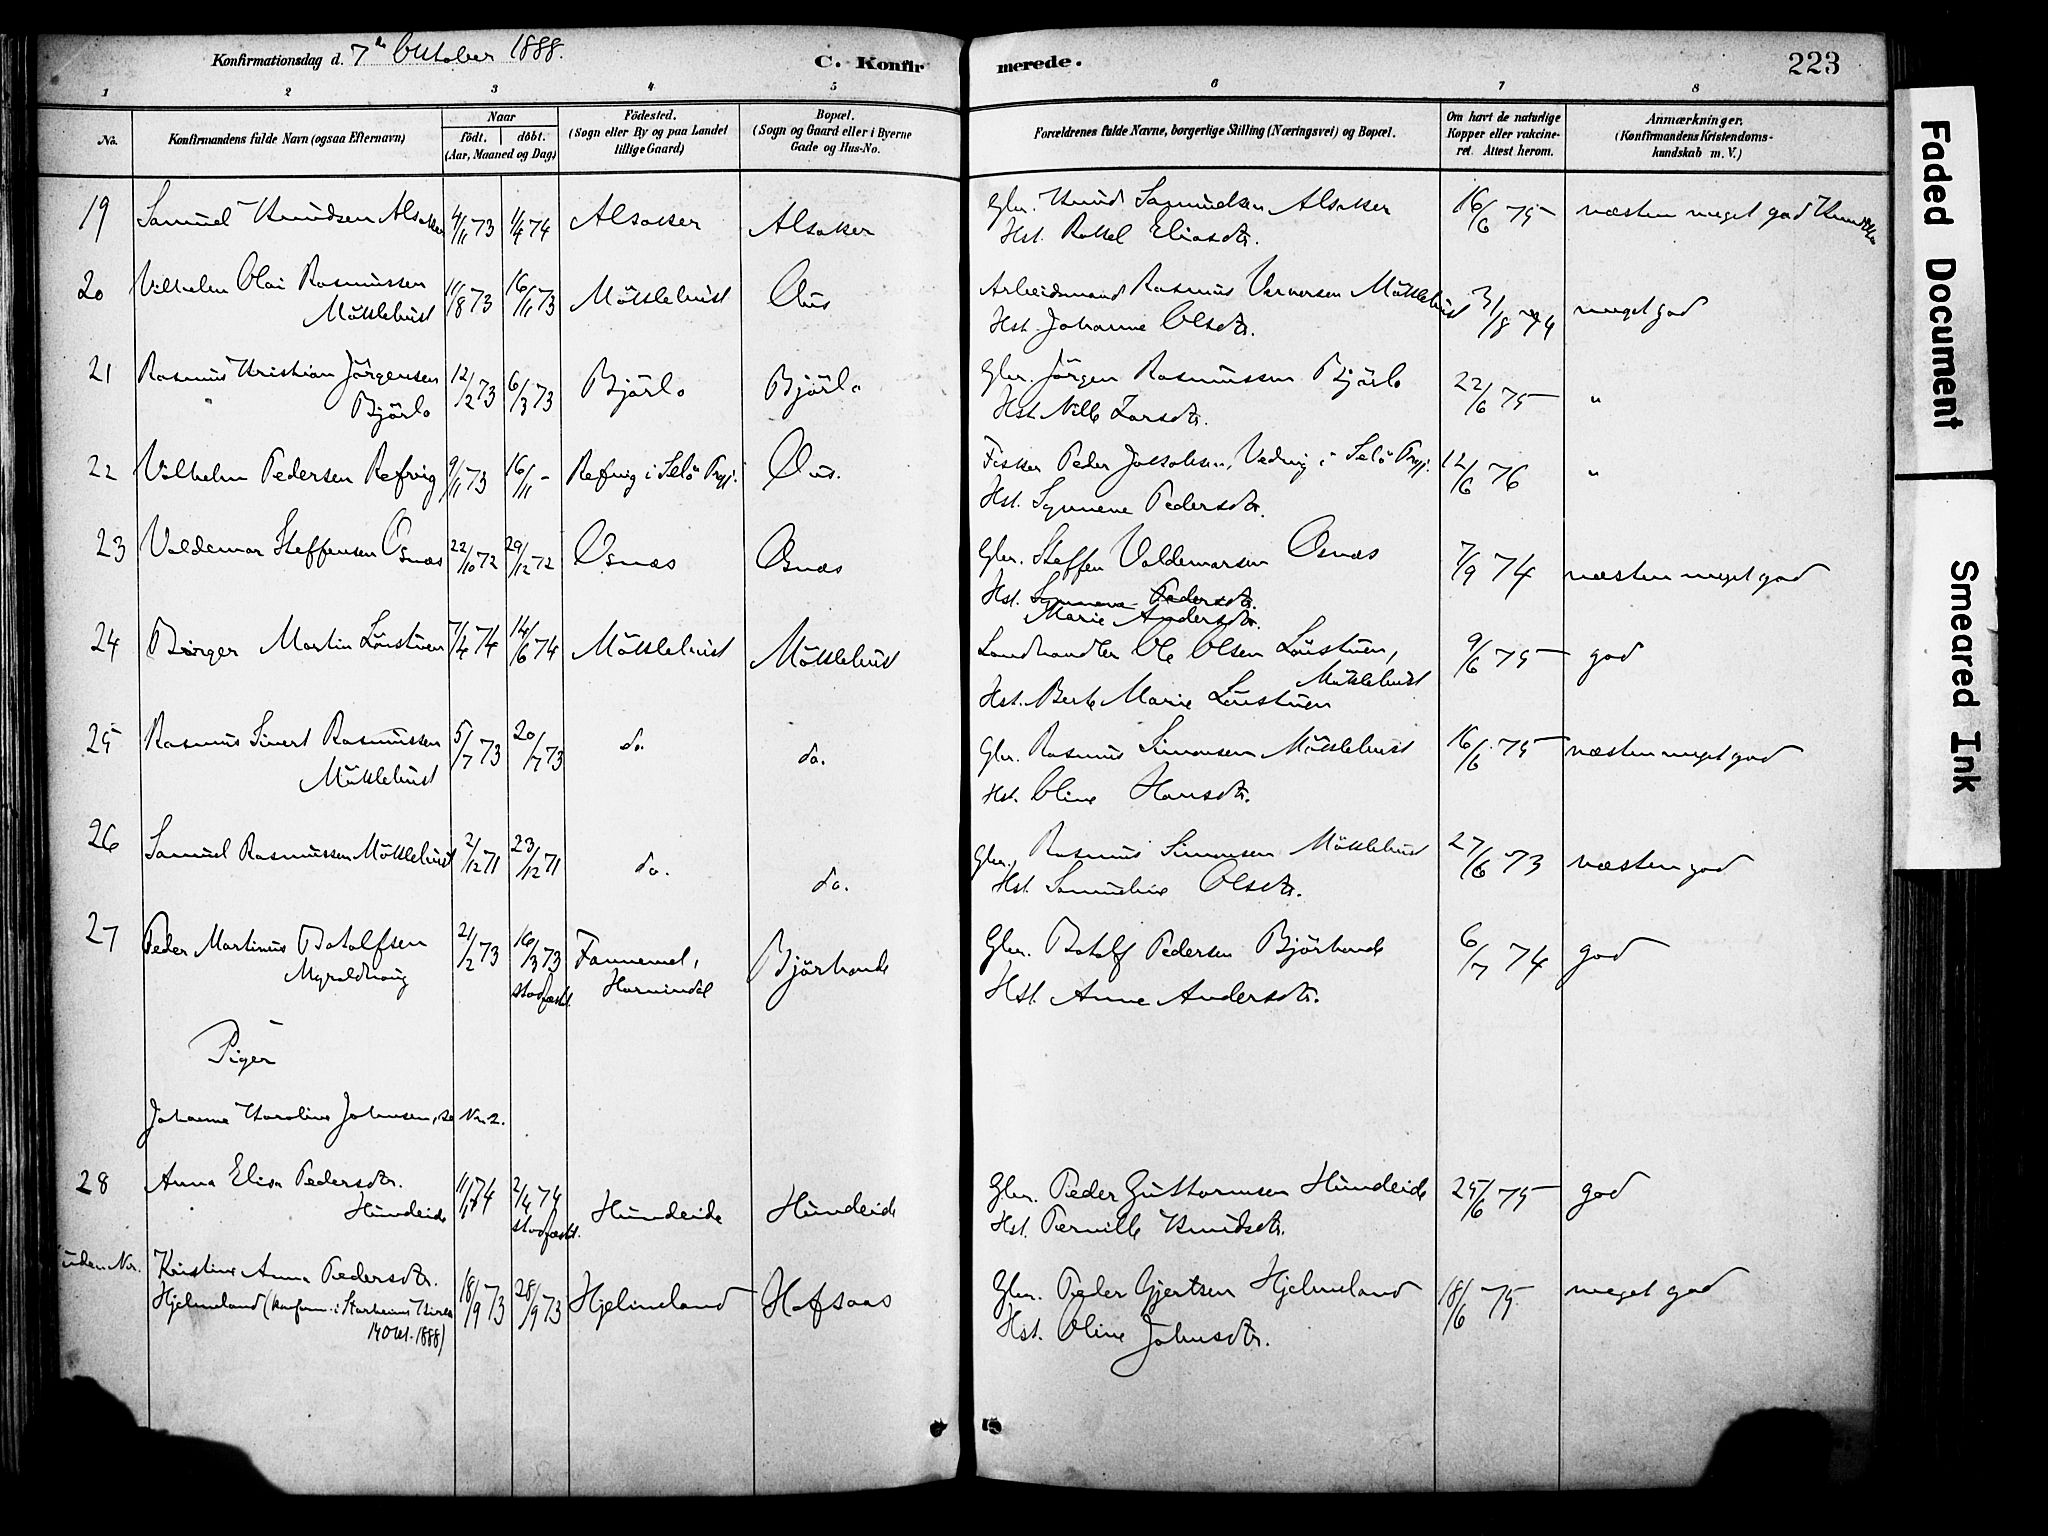 Konfirmationsdag d. 7de October 1888.
C. Konfirmerede.
223
1 2 3 4 5 6 7 8
No.
Konfirmandens fulde Navn (ogsaa Efternavn)
Naar
födt. döbt.
(Aar, Maaned og Dag)
Födested.
(Sogn eller By og paa Landet
tillige Gaard)
Bopæl.
(Sogn og Gaard eller i Byerne
Gade og Hus-No.
Forældrenes fulde Navne, borgerlige Stilling (Næringsvei) og Bopæl.
Om havt de naturlige
Kopper eller vakcine-
ret. Attest herom.
Anmærkninger,
(Konfirmandens Kristendoms-
kundskab m. V.)
19 Samuel Knudsen Alsaker 4/11 73 1/4 74 Alsaker Alsaker Gbr. Knud Samuelsen Alsaker 16/6 75 næsten meget god
Hst. Rakel Eliasdtr.
20 Vilhelm Olai Rasmussen 11/8 73 16/11 73 Möklebust Aus Arbeidsmand Rasmus Möklebust 31/8 74 meget god
Möklebust Hst. Johanne Olsdtr.
21 Rasmus Kristian Jörgensen 12/2 73 6/3 73 Björlo Björlo Gbr. Jörgen Rasmussen Björlo 22/6 75 "
Björlo Hst. Nille Larsdtr.
22 Vilhelm Pedersen Refvig 9/11 73 16/11 - Refvig i Selö Prgj. Aus. Fisker Peder Jakobsen, i Selö Prgj. 12/6 76 "
Hst. Synneve Pedersdtr.
23 Valdemar Steffensen Osnæs 22/10 72 29/12 72 Osnæs Osnæs Gbr. Steffen Valdemarsen Osnæs 7/9 74 næsten meget god
Hst. Synneve Pedersdtr.
Marie Andersdtr.
24 Börger Martin Löustuen 7/4 74 14/6 74 Möklebust Möklebust Landhandler Ole Olsen Löustuen, 9/6 75 god
Möklebust
Hst. Berte Marie Löustuen
25 Rasmus Sivert Rasmussen 5/7 73 20/7 73 do. do. Gbr. Rasmus Simonsen Möklebust 16/6 75 næsten meget god
Möklebust Hst. Oline Hansdtr.
26 Samuel Rasmussen Möklebust 2/12 71 23/12 71 do. do. Gbr. Rasmus Simonsen Möklebust 27/6 73 næsten god
Hst. Samueline Olsdtr.
27 Peder Martinus Botolfsen 21/2 73 16/3 73 Fannemel, Björhovde Gbr. Botolf Pedersen Björhovde 6/7 74 god
stadfæst. Hornindal Hst. Anne Andersdtr.
Piger
Johanne Karoline Johnsen, se No. 2.
28 Anna Elisa Pedersdtr. 11/1 74 2/4 74 Hundeide Hundeide Gbr. Peder Guttormsen Hundeide 25/6 75 god
Hundeide stadfæst. Hst. Pernille Knudsdtr.
uden No. Kristine Anna Pedersdtr. 18/9 73 28/9 73 Hjelmeland Hofsaas Gbr. Peder Gjertsen Hjelmeland 18/6 75 meget god
Hjelmeland (konfirm. i Starheims Kirke Hst. Oline Johnsdtr.
14 Okt. 1888)
Faded Document
Smeared Ink